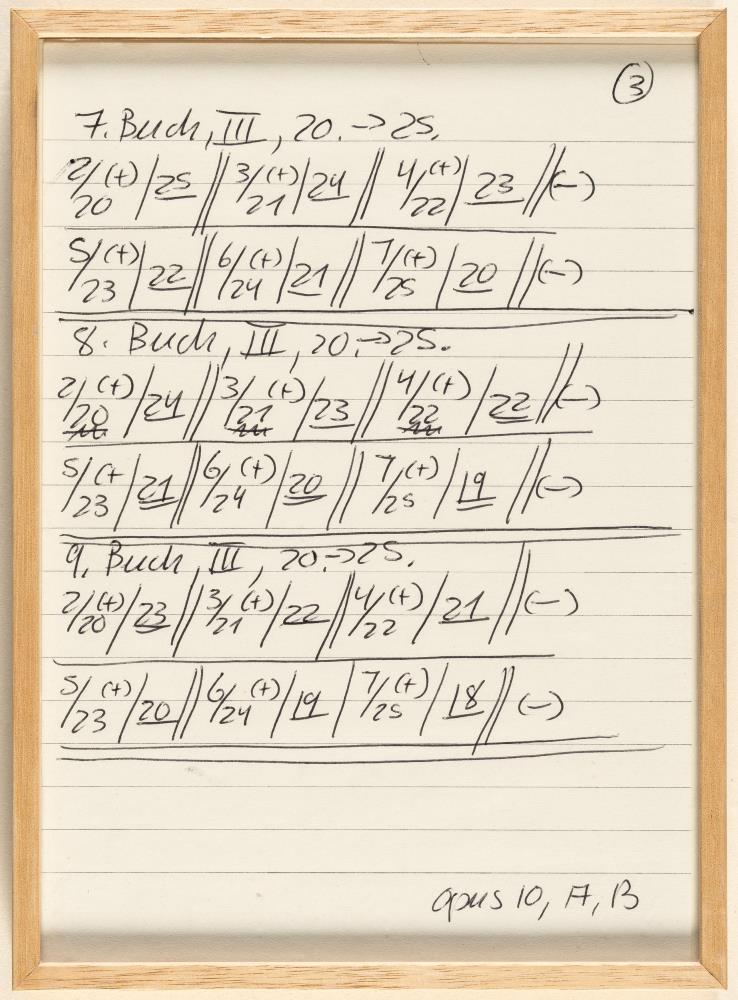 ③
7. Buch, III, 20. → 25.
2/20 (+) | 25 || 3/21 (+) | 24 || 4/22 (+) | 23 || (−)
5/23 (+) | 22 || 6/24 (+) | 21 || 7/25 (+) | 20 || (−)
8. Buch, III, 20. → 25.
2/20 (+) | 24 || 3/21 (+) | 23 || 4/22 (+) | 22 || (−)
5/23 (+ | 21 || 6/24 (+) | 20 || 7/25 (+) | 19 || (−)
9. Buch, III, 20. → 25.
2/20 (+) | 23 || 3/21 (+) | 22 || 4/22 (+) | 21 || (−)
5/23 (+) | 20 || 6/24 (+) | 19 | 7/25 (+) | 18 || (−)
opus 10, A, B